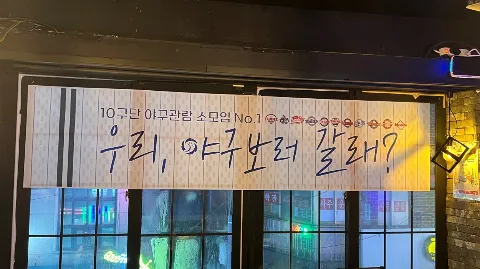 10구단 야구관람 소모임 No.1
우리, 야구보러 갈래?